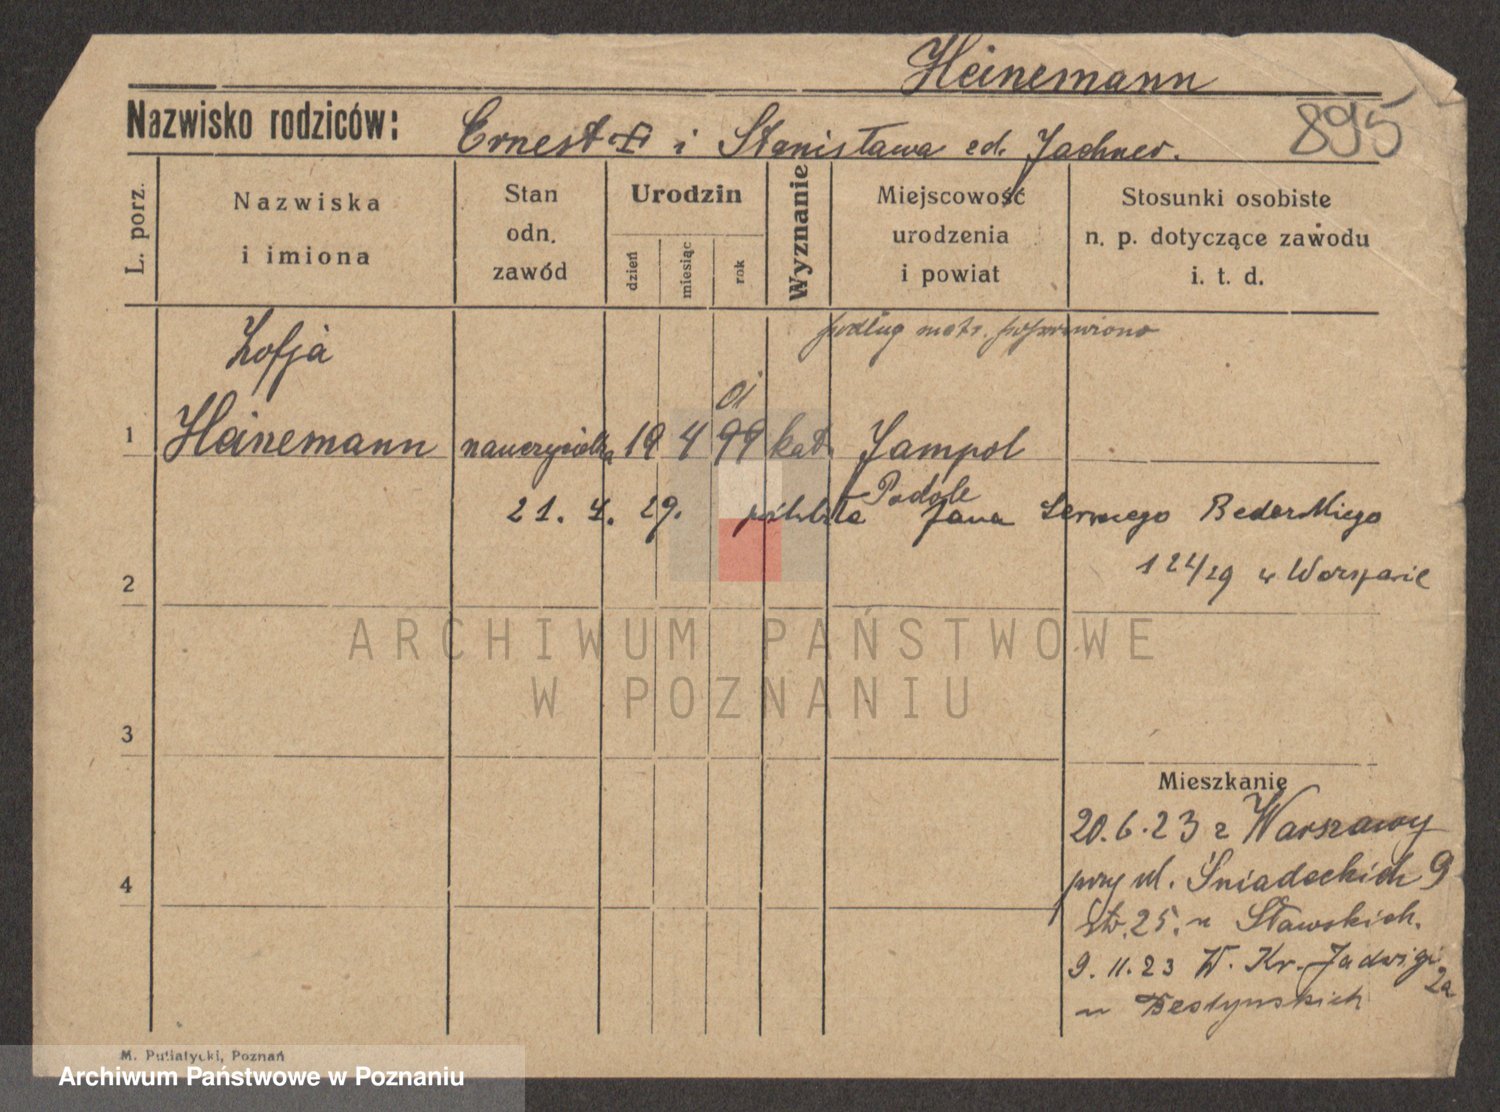 Heinemann
Nazwisko rodziców: Ernest i Stanisława zd. Jachner.
895
L. porz.
Nazwiska i imiona
Stan odn. zawód
Urodzin
dzień
miesiąc
rok
Wyznanie
Miejscowość urodzenia i powiat
Stosunki osobiste n. p. dotyczące zawodu i. t. d.
podług metr. poprawiono
Zofja
1 Heinemann nauczycielka 19 4 99 kat. Jampol
Podole
21. 4. 29. poślubiła Jana
124/29 w Warszawie
2
ARCHIWUM PAŃSTWOWE
W POZNANIU
3
Mieszkanie
20.6.23 z Warszawy
przy ul. Śniadeckich 9
str. 25. u Stawskich.
4
9.11.23 W. Kr. Jadwigi 2a
u
M. Putiatycki, Poznań
Archiwum Państwowe w Poznaniu